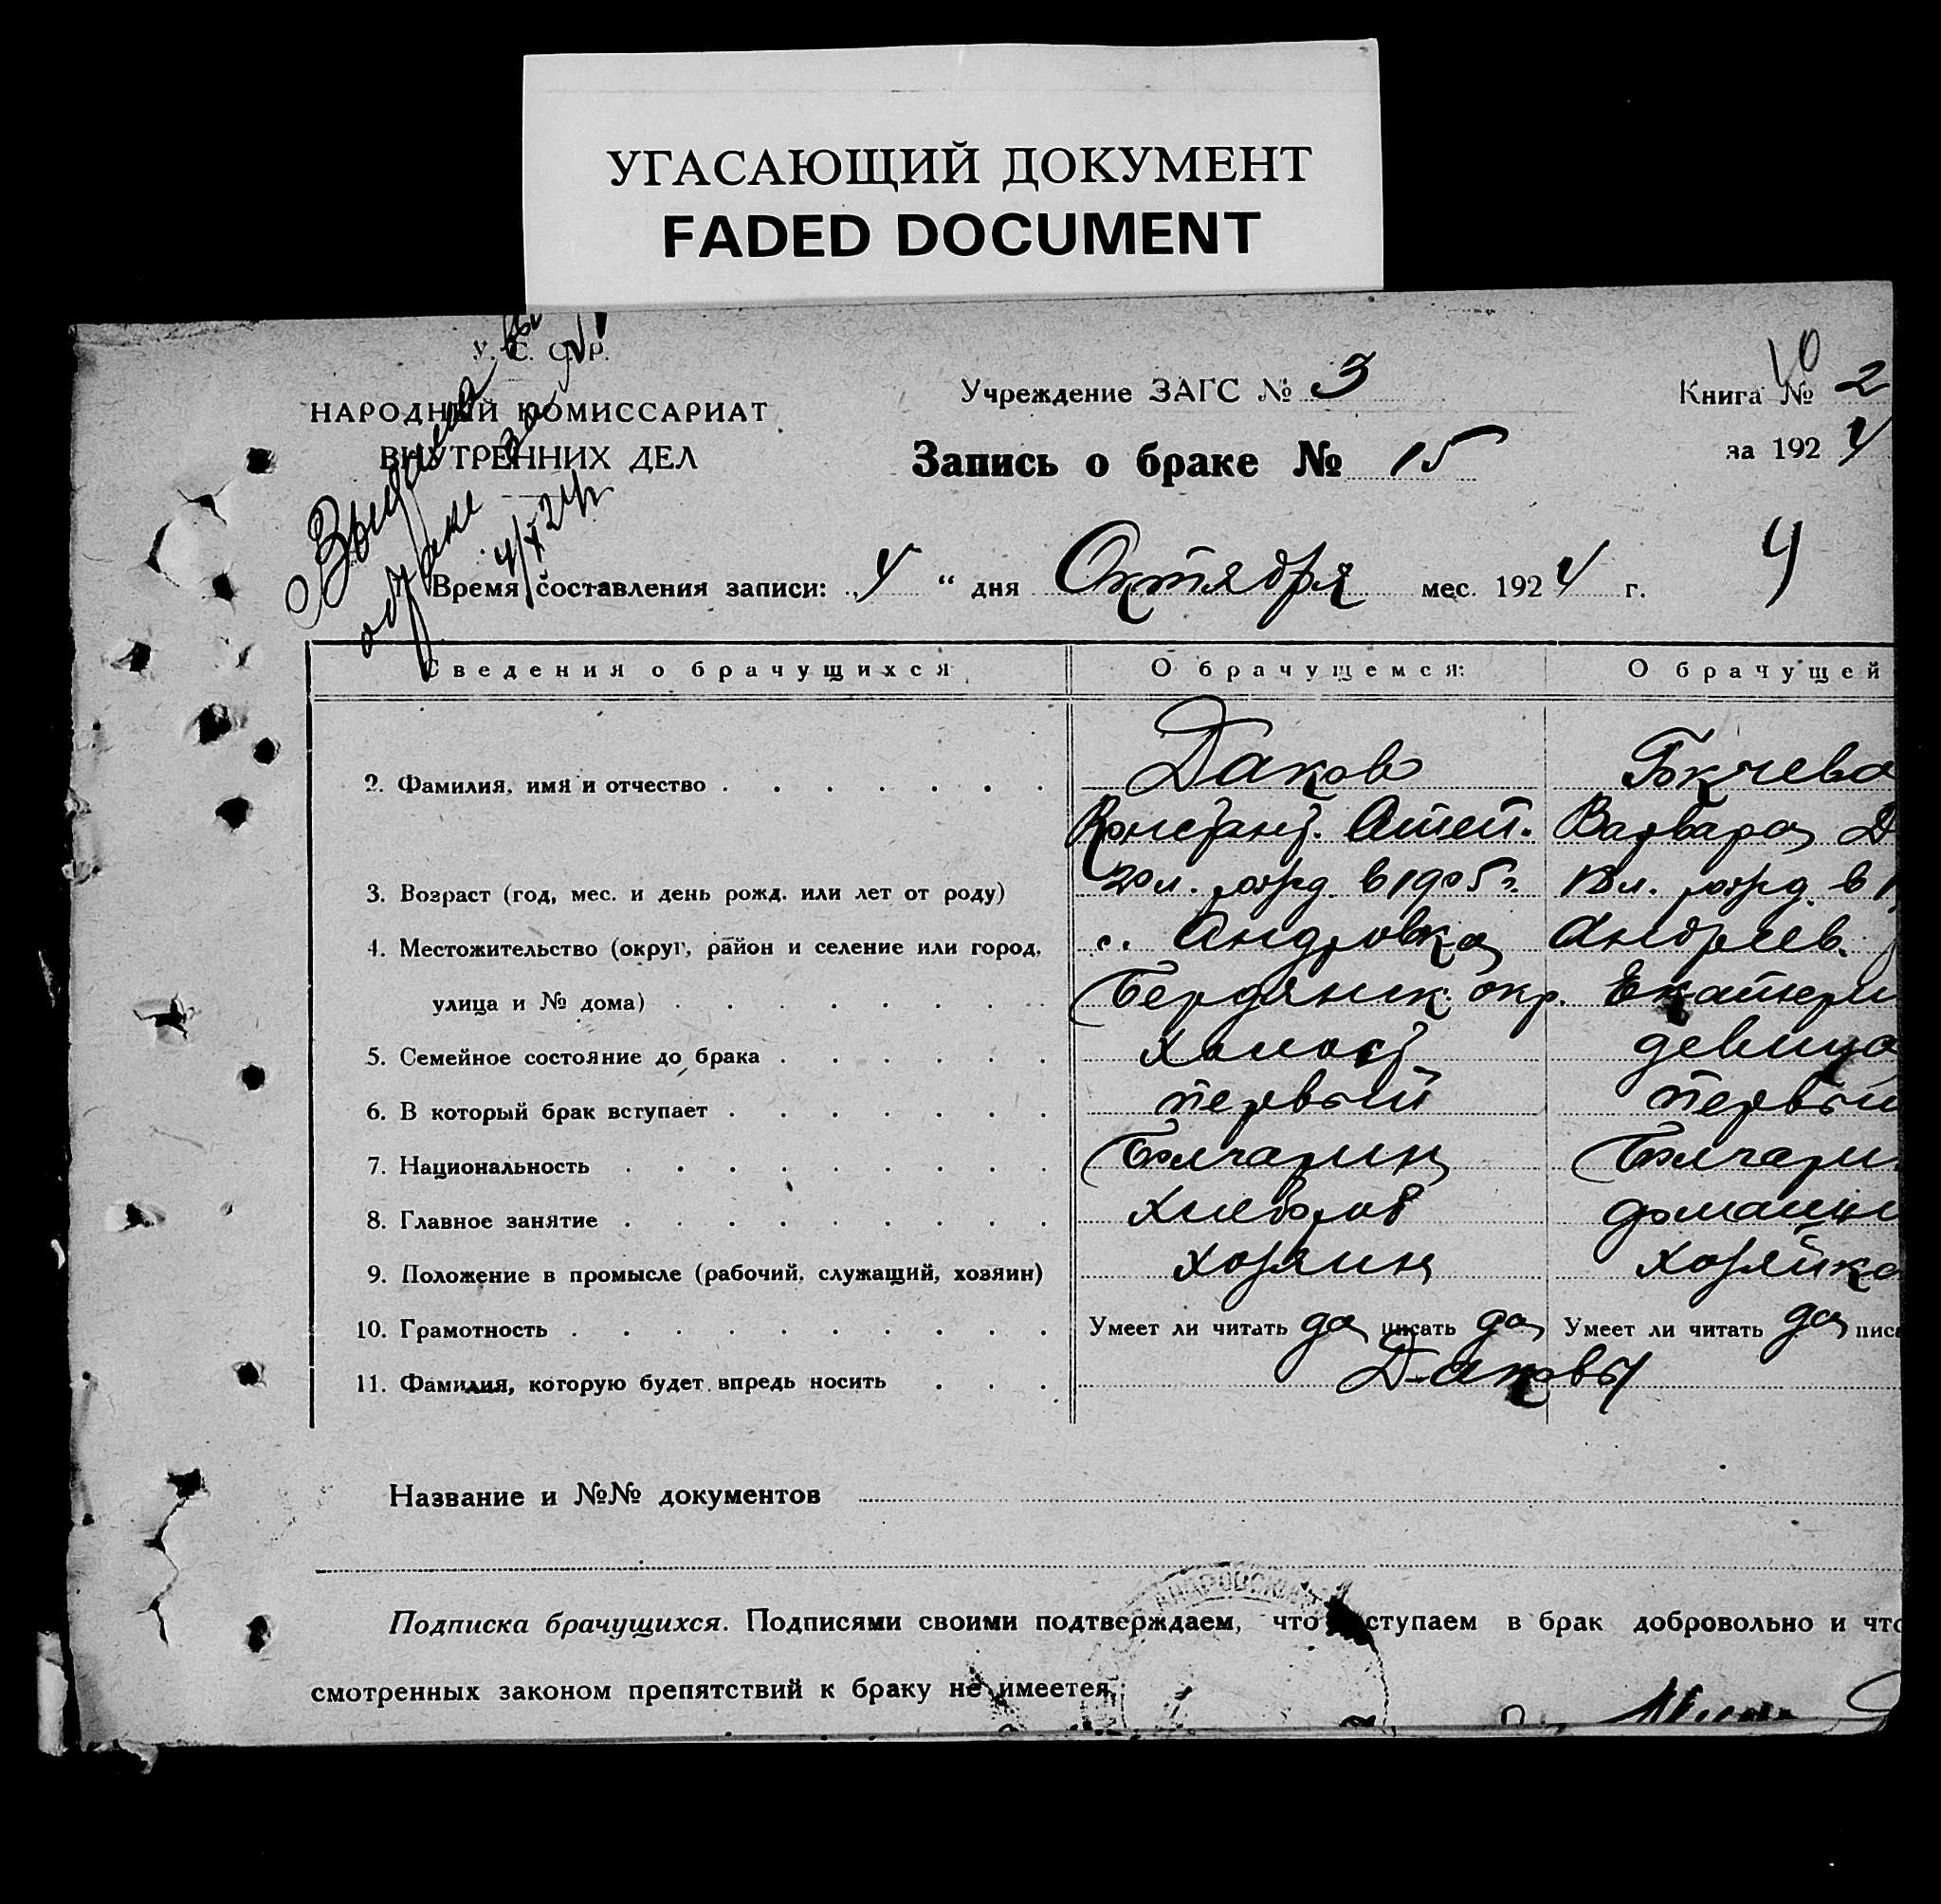 УГАСАЮЩИЙ ДОКУМЕНТ
FADED DOCUMENT
У. С. С. Р.
НАРОДНЫЙ КОМИССАРИАТ
ВНУТРЕННИХ ДЕЛ
Учреждение ЗАГС № 3
Книга № 2
10
Запись о браке № 15
за 1924
4/X 24 г
Время составления записи: „4“ дня Октября мес. 1924 г.
4
Сведения о брачущихся
О брачущемся:
О брачущей
2. Фамилия, имя и отчество
Даков
Бокчева
Констант. Степ.
Варвара Д
3. Возраст (год, мес. и день рожд. или лет от роду)
20 л. рожд. в 1905 г.
18 л. рожд. в 1
4. Местожительство (округ, район и селение или город,
с. Андровка
Андреев.
улица и № дома)
Бердянск. окр.
Екатери
5. Семейное состояние до брака
холост
девица
6. В который брак вступает
первый
первый
7. Национальность
Болгарин
Болгари
8. Главное занятие
хлебороб
домашн
9. Положение в промысле (рабочий, служащий, хозяин)
хозяин
хозяйка
10. Грамотность
Умеет ли читать да писать да
Умеет ли читать да писа
11. Фамилия, которую будет впредь носить
Даковы
Название и №№ документов
Подписка брачущихся. Подписями своими подтверждаем, что вступаем в брак добровольно и что
смотренных законом препятствий к браку не имеется.